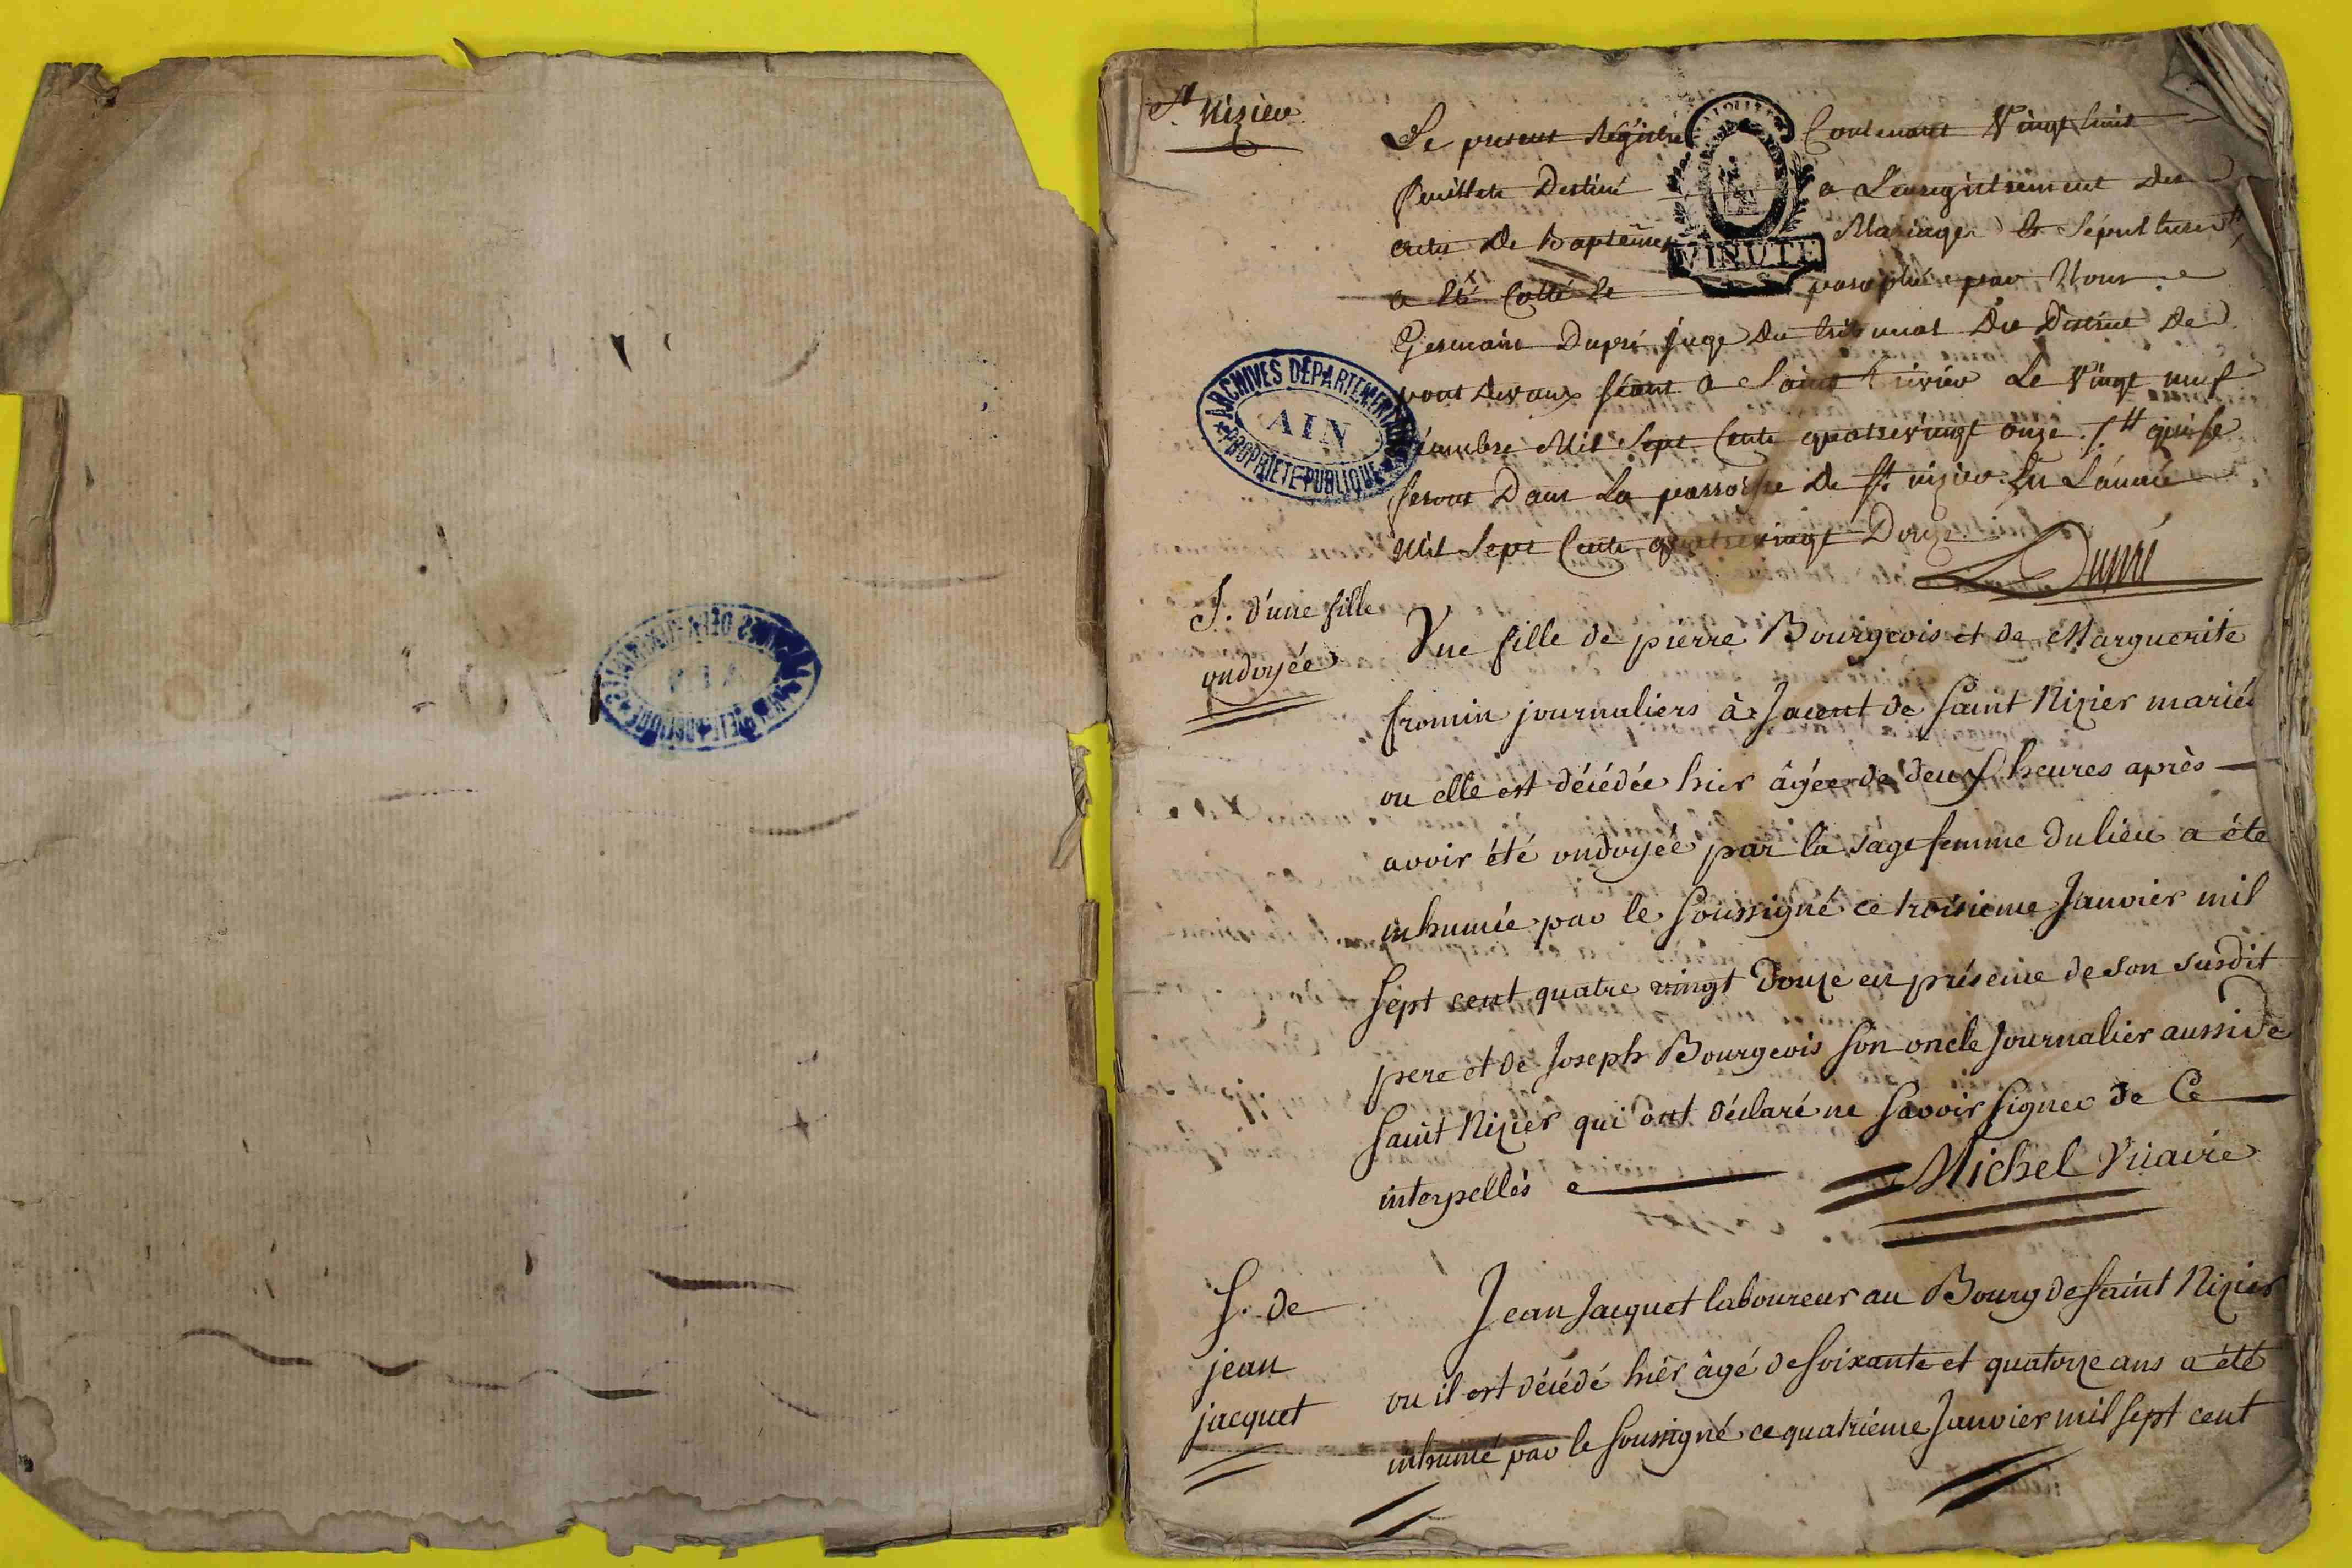 St Nizier
Le present Registre Contenant Vingt huit
feuillets Destiné a Lenregistrement des
actes de baptêmes Mariages & Sépultures #
a été Cotté & paraphé par Nous
Germain Dupré juge du tribunal du District de
pont devaux séant a Saint trivier Le Vingt neuf
décembre Mil Sept Cents quatrevingt onze ./. # qui se
feront Dans La parroisse de St nizier En L'année
Mil Sept Cents quatrevingt Douze
Dupré
MINUTE
ARCHIVES DÉPARTEMENTALES
AIN
PROPRIÉTÉ PUBLIQUE
S. d'une fille
ondoyée
Une fille de pierre Bourgeois et de Marguerite
fromin journaliers à Jacent de Saint Nizier mariés
ou elle est décédée hier âgée de deux heures après
avoir été ondoyée par la sage femme du lieu a été
inhumée par le Soussigné ce troisieme Janvier mil
Sept cent quatre vingt Douze en présence de son susdit
pere et de Joseph Bourgeois Son oncle Journalier aussi de
Saint Nizier qui ont déclaré ne Savoir Signer de Ce
interpellés
Michel Vicaire
S. de
jean
jacquet
Jean Jacquet laboureur au Bourg de Saint Nizier
ou il est décédé hier âgé de Soixante et quatorze ans a été
inhumé par le Soussigné ce quatrième Janvier mil Sept cent